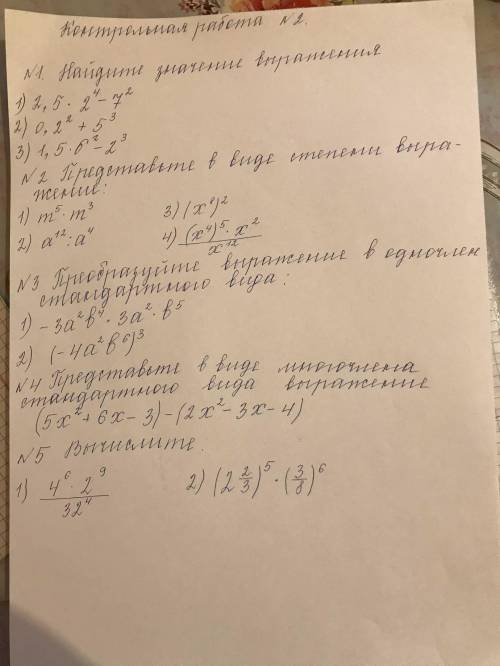 Контрольная работа №2.
№1. Найдите значение выражения
1) 2,5 · 2⁴ - 7²
2) 0,2² + 5³
3) 1,5 · 6² - 2³
№2 Представьте в виде степени выра-
жение:
1) m⁵ · m³ 3) (x⁴)²
2) a¹² : a⁴ 4) (x⁴)⁵ · x² / x¹²
№3 Преобразуйте выражение в одночлен
стандартного вида:
1) -3a²b⁴ · 3a² · b⁵
2) (-4a²b⁶)³
№4 Представьте в виде многочлена
стандартного вида выражение
(5x² + 6x - 3) - (2x² - 3x - 4)
№5 Вычислите.
1) 4⁶ · 2⁹ / 32⁴ 2) (2 2/3)⁵ · (3/8)⁶